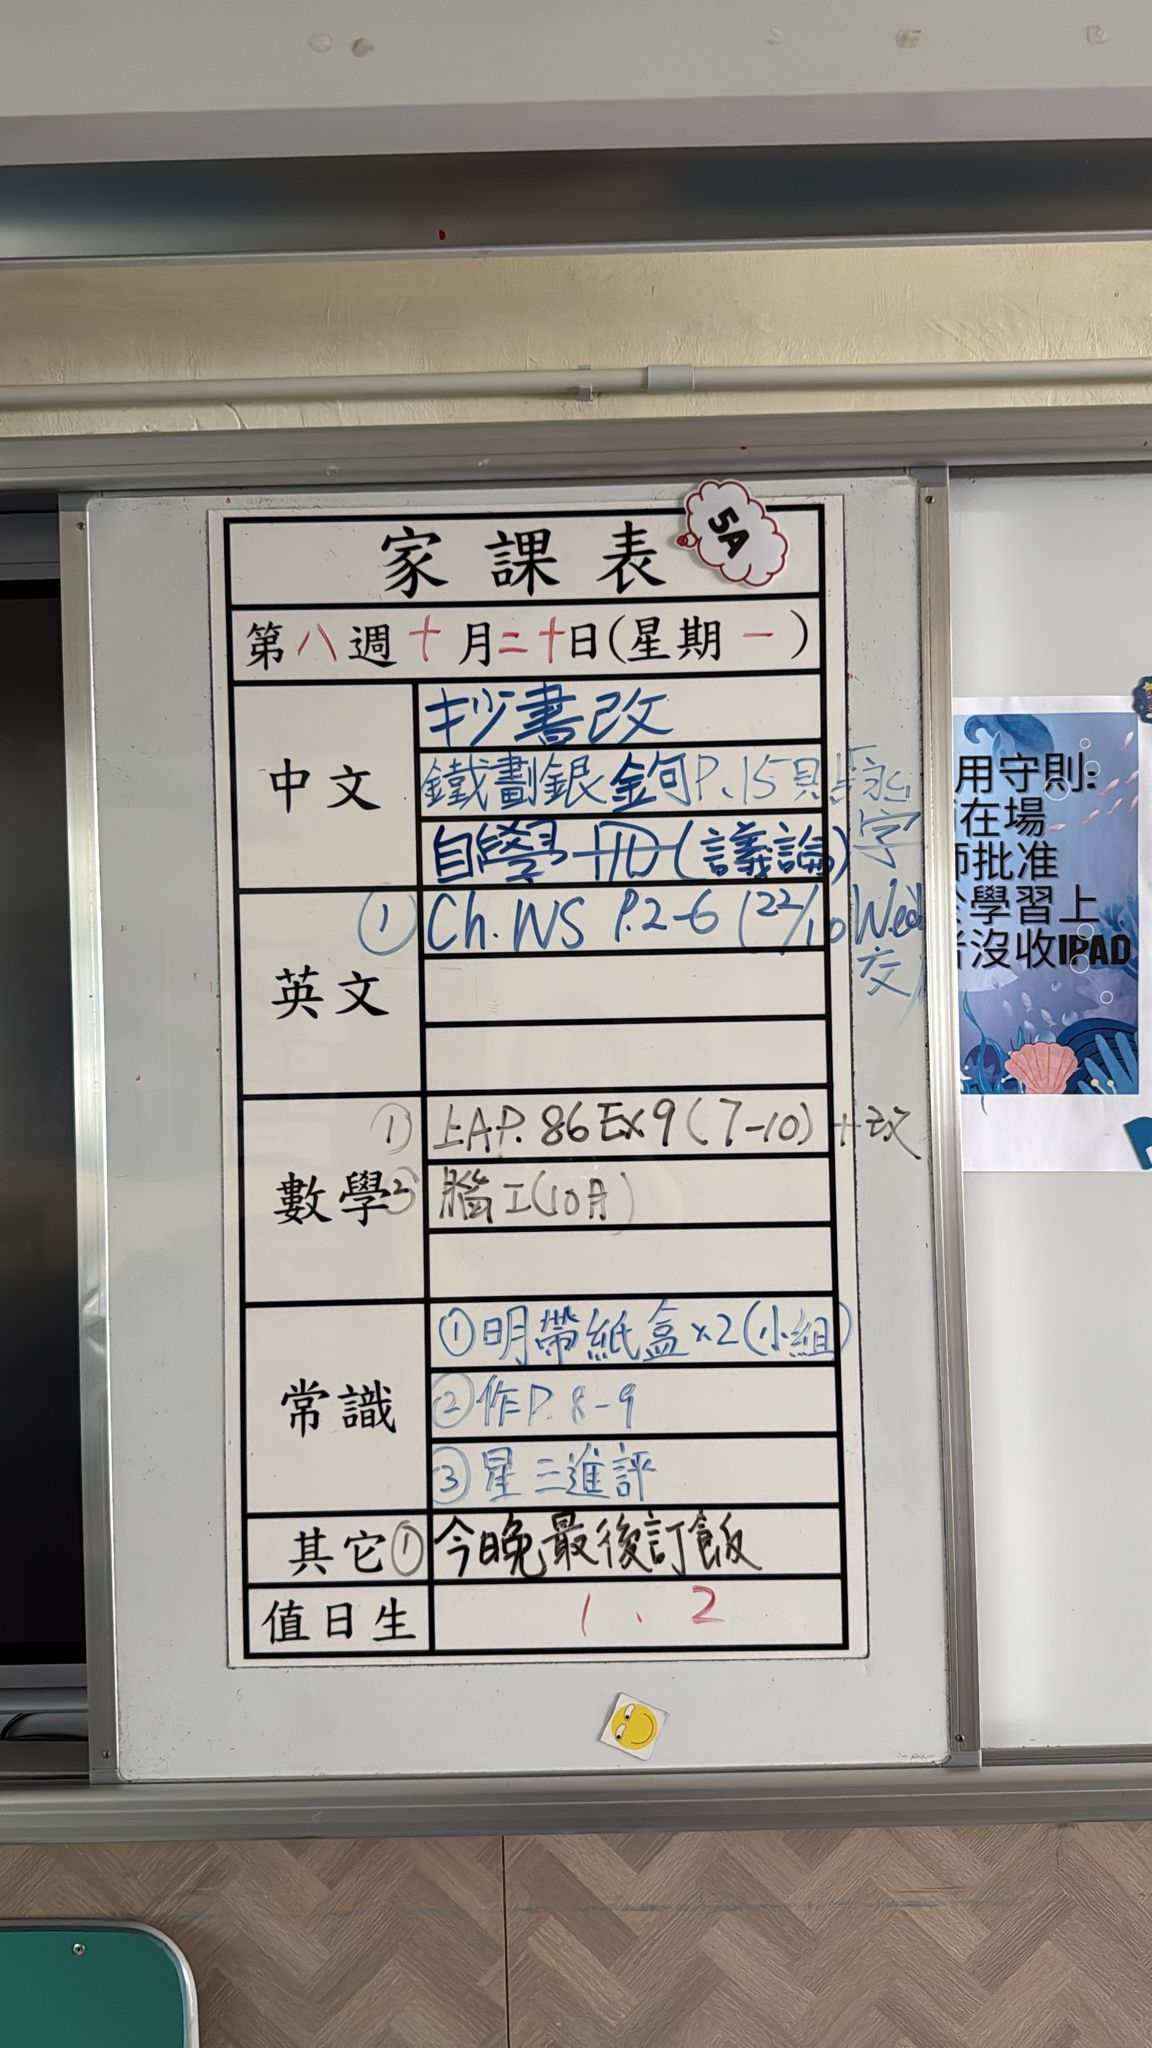 家課表
5A
第八週十月二十日(星期一)
中文
抄書改
鐵劃銀鉤P.15
字
自學冊(議論)
英文
① Ch. WS P.2-6 (22/10 Wed
交)
數學
① 上A P. 86 Ex 9 (7-10) +改
② 腦工(10月)
常識
①明帶紙盒x2(小組)
②作P. 8-9
③星三進評
其它
① 今晚最後訂飯
值日生
1、2
用守則:
在場
師批准
學習上
者沒收IPAD